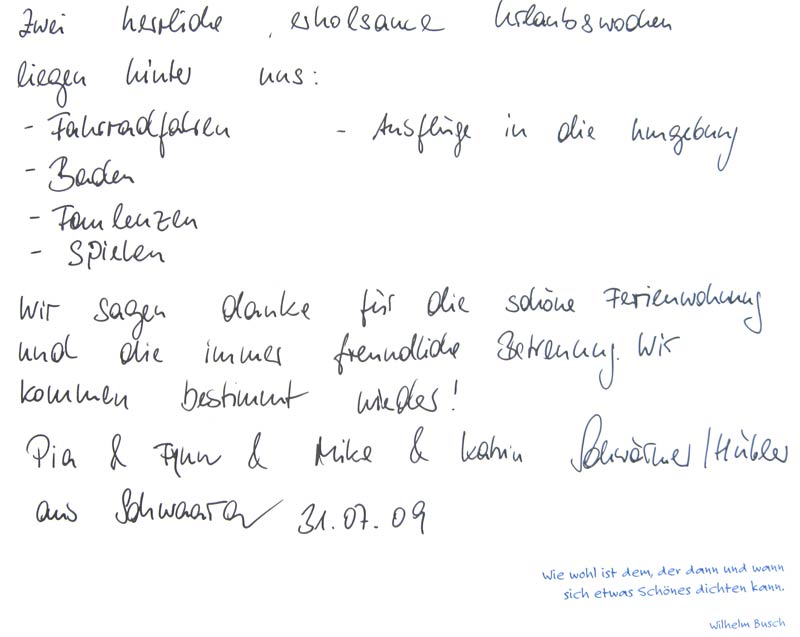 Zwei herrliche, erholsame Urlaubswochen
liegen hinter uns:
- Fahrradfahren - Ausflüge in die Umgebung
- Baden
- Faulenzen
- Spielen
Wir sagen danke für die schöne Ferienwohnung
und die immer freundliche Betreuung. Wir
kommen bestimmt wieder!
Pia & Fynn & Mike & Katrin Schwärmer/Hübler
aus Schwaara 31.07.09
Wie wohl ist dem, der dann und wann
sich etwas Schönes dichten kann.
Wilhelm Busch